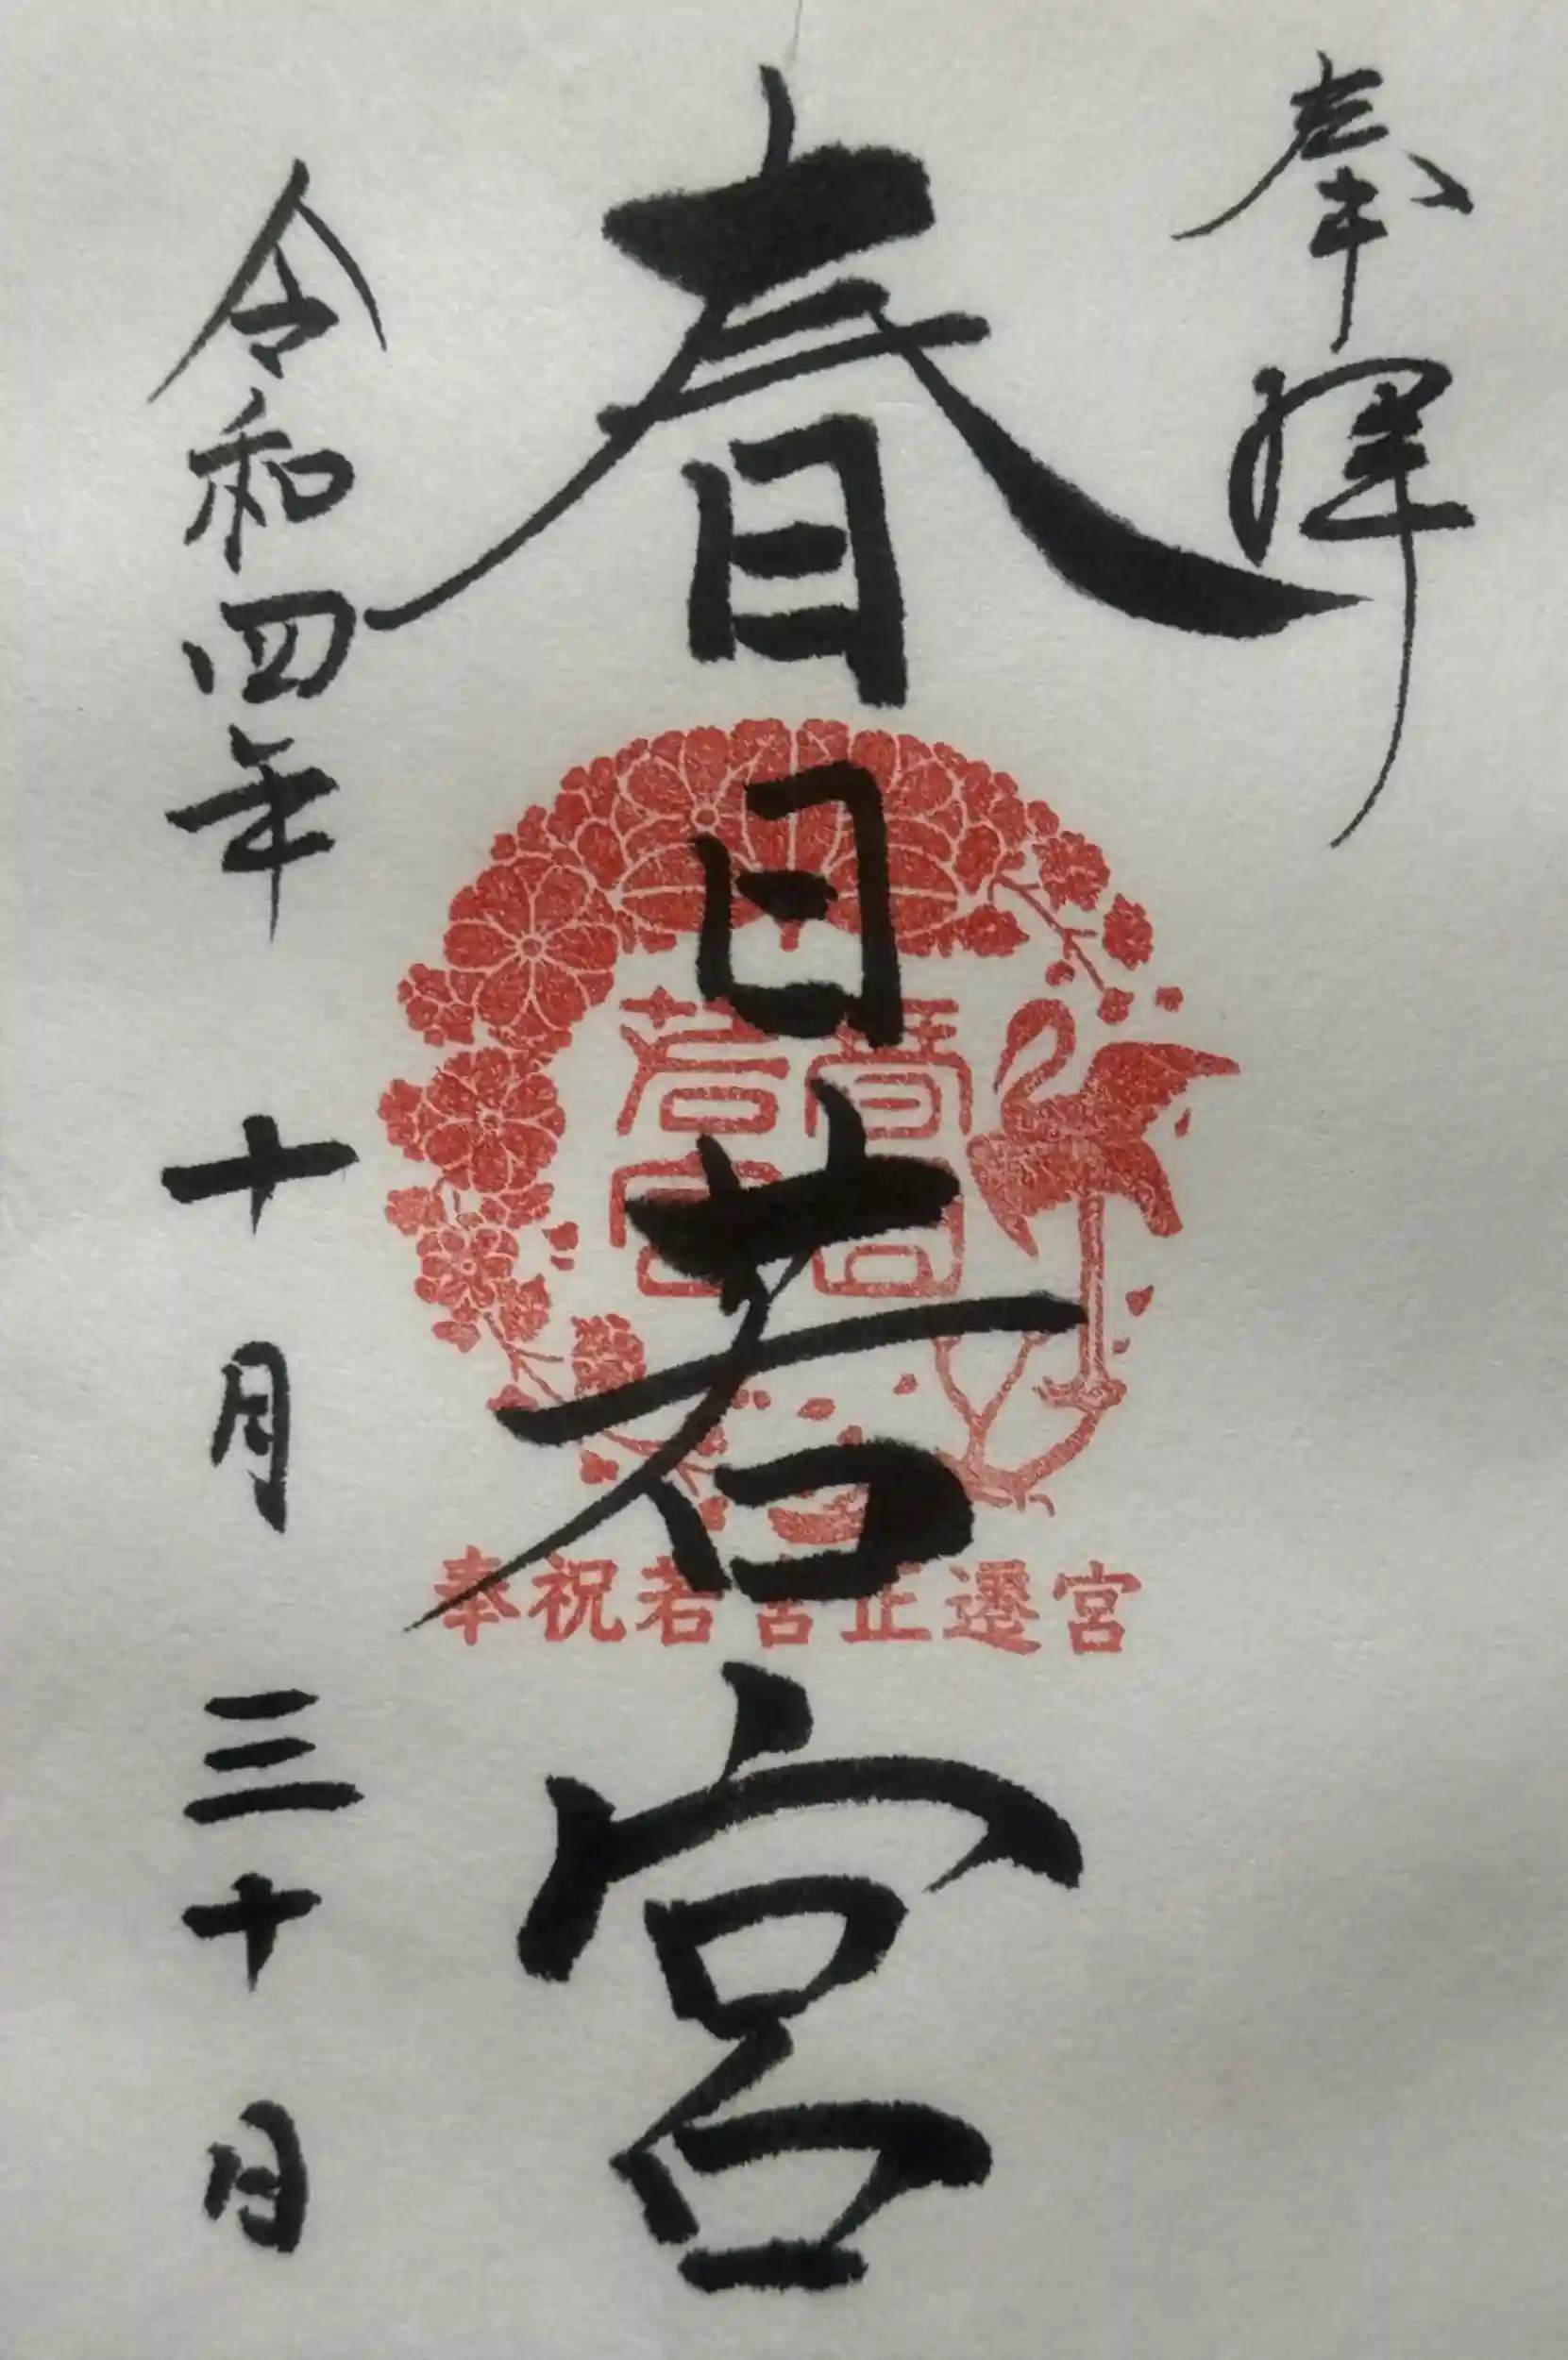 奉拝
春日若宮
令和四年十月三十日
春日若宮
奉祝若宮正遷宮